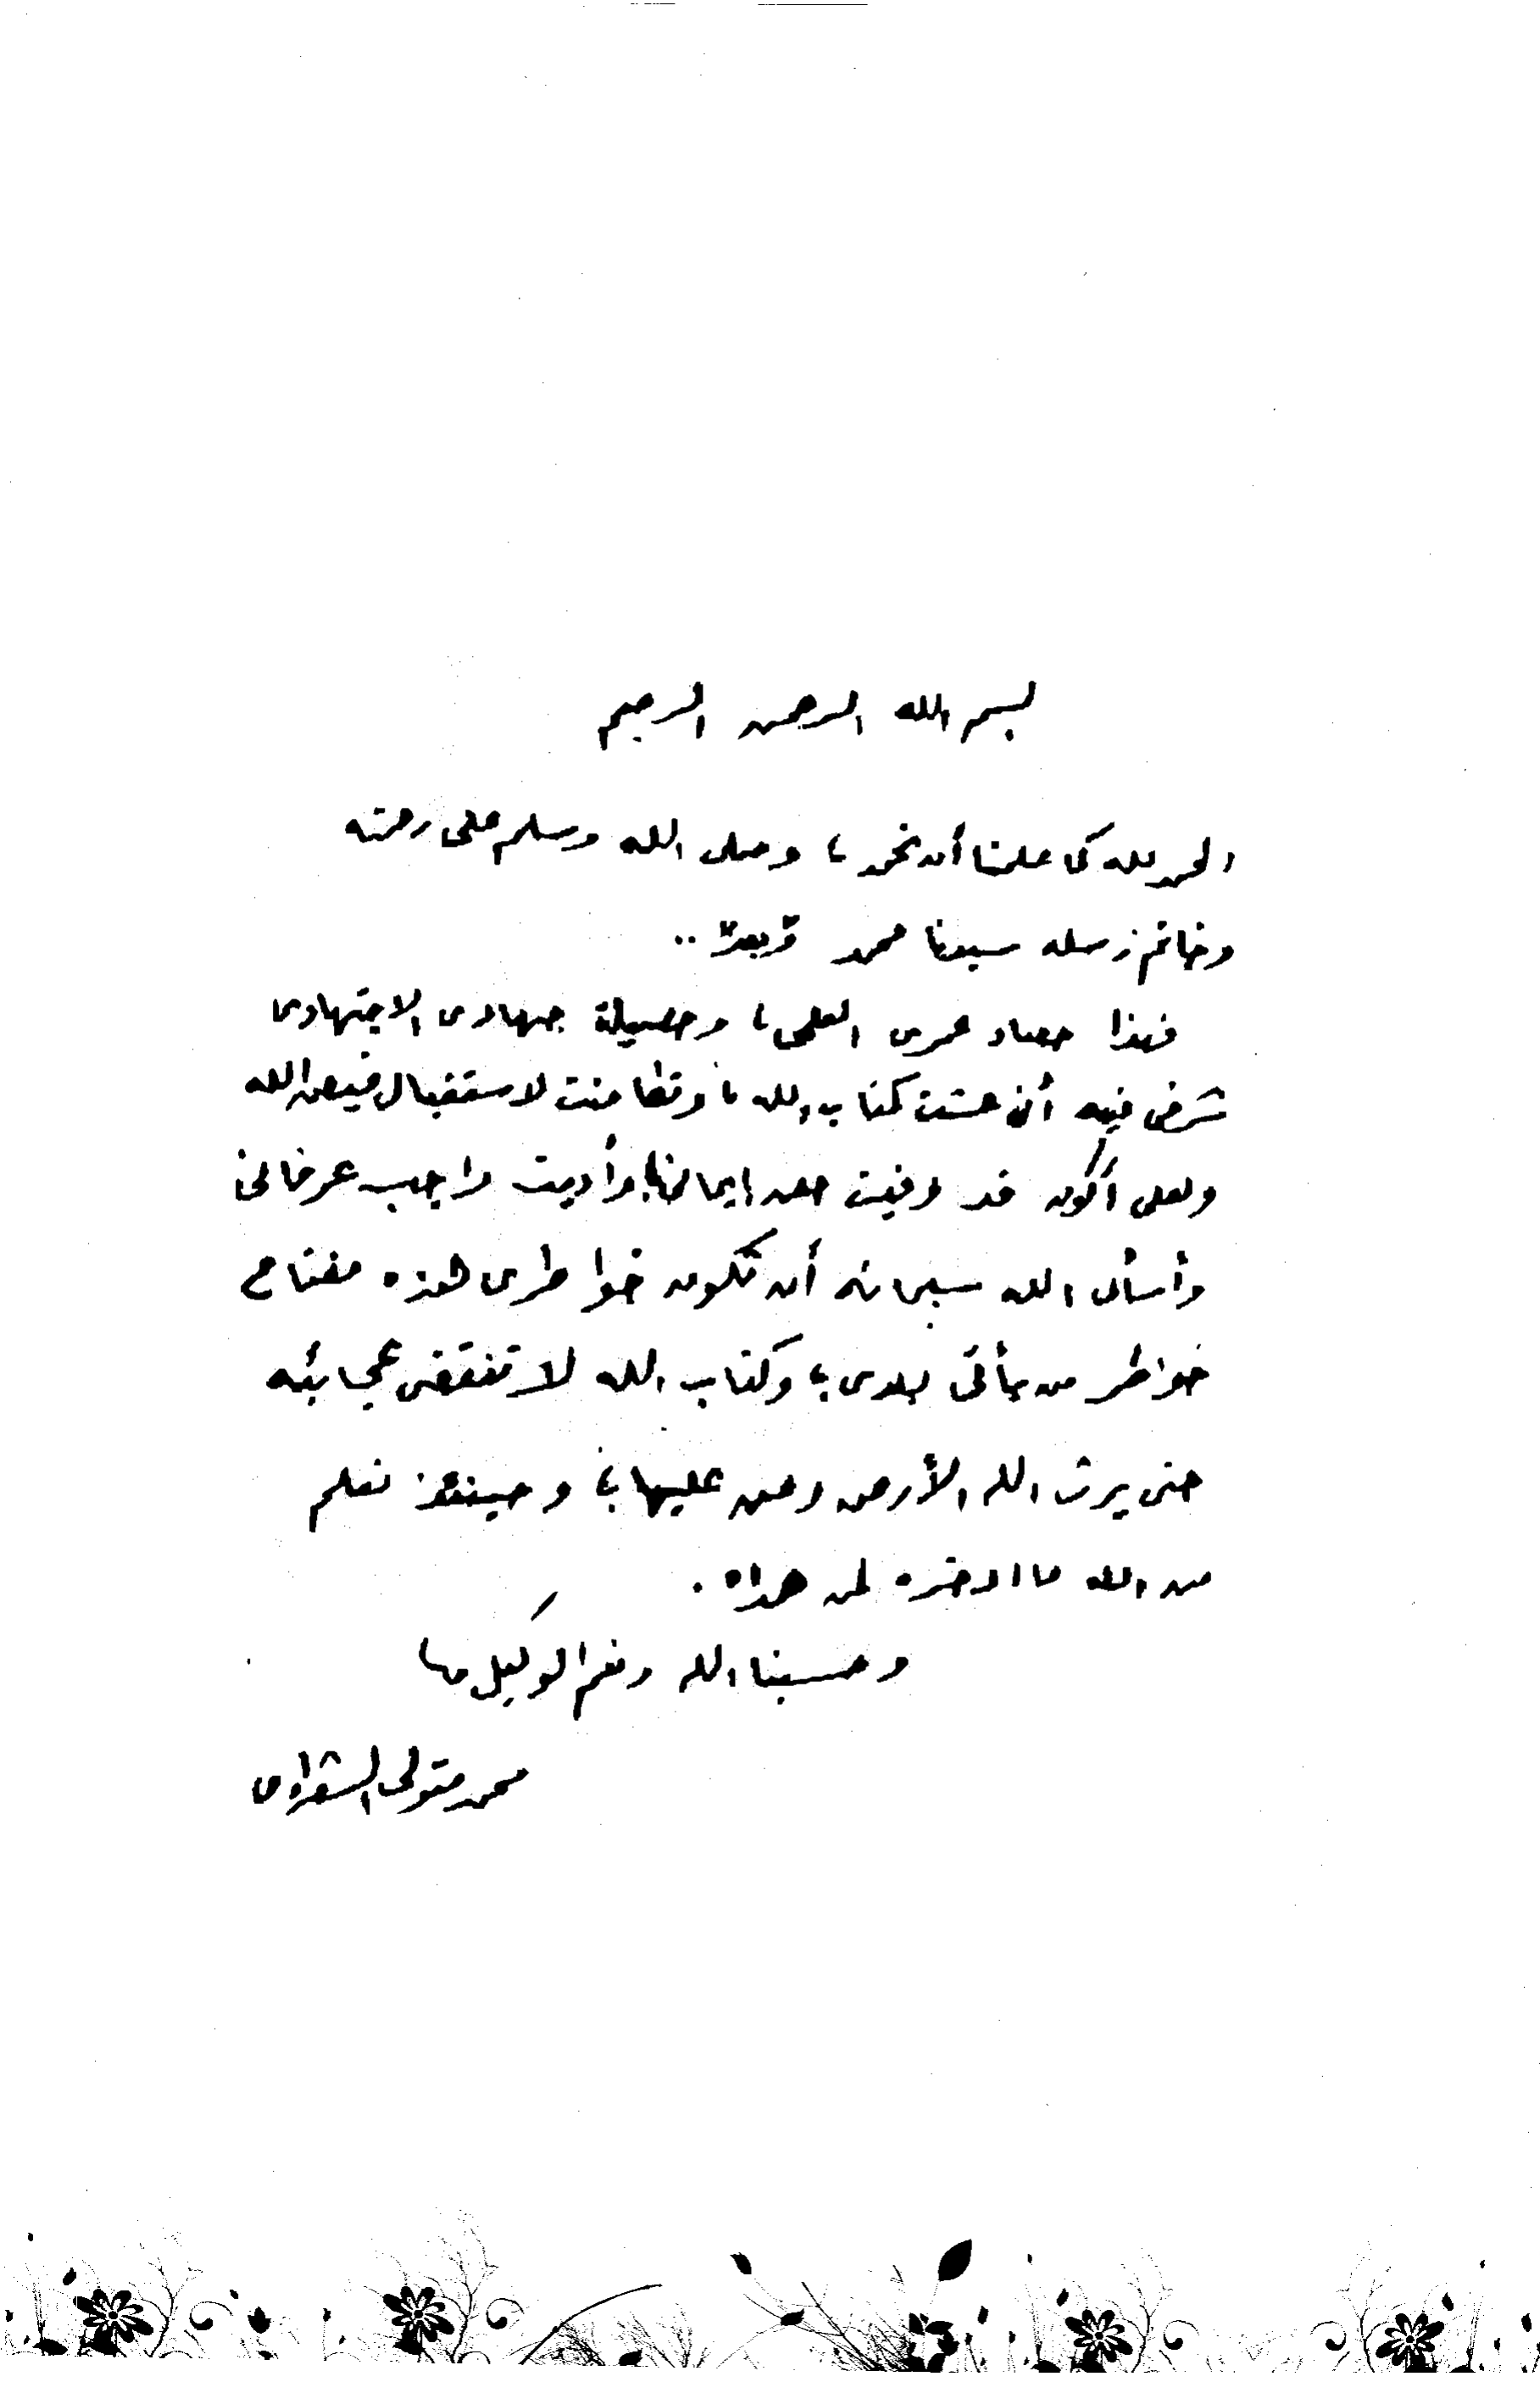 بسم الله الرحمن الرحيم
الحمد لله كما علمنا أن نحمد، وصلى الله وسلم على رحمته
وخاتم رسله سيدنا محمد وبعد ..
فهذا حصاد عمرى العلمى، وحصيلة جهادى الاجتهادى
شرفى فيه أنى عشت كتاب الله، وتطامنت لاستقبال فيض الله
ولعلى أكون قد وفيت حق إيمانى، وأديت واجب عرفانى
وأسأل الله سبحانه أن تكون خواطرى هذه مفتاح
خواطر من يأتى بعدى؛ وكتاب الله لا تنقضى عجائبه
حتى يرث الله الأرض ومن عليها؛ وحينئذ نعلم
من الله ما ادخره لمن هداه .
وحسبنا الله ونعم الوكيل
محمد متولى الشعراوى